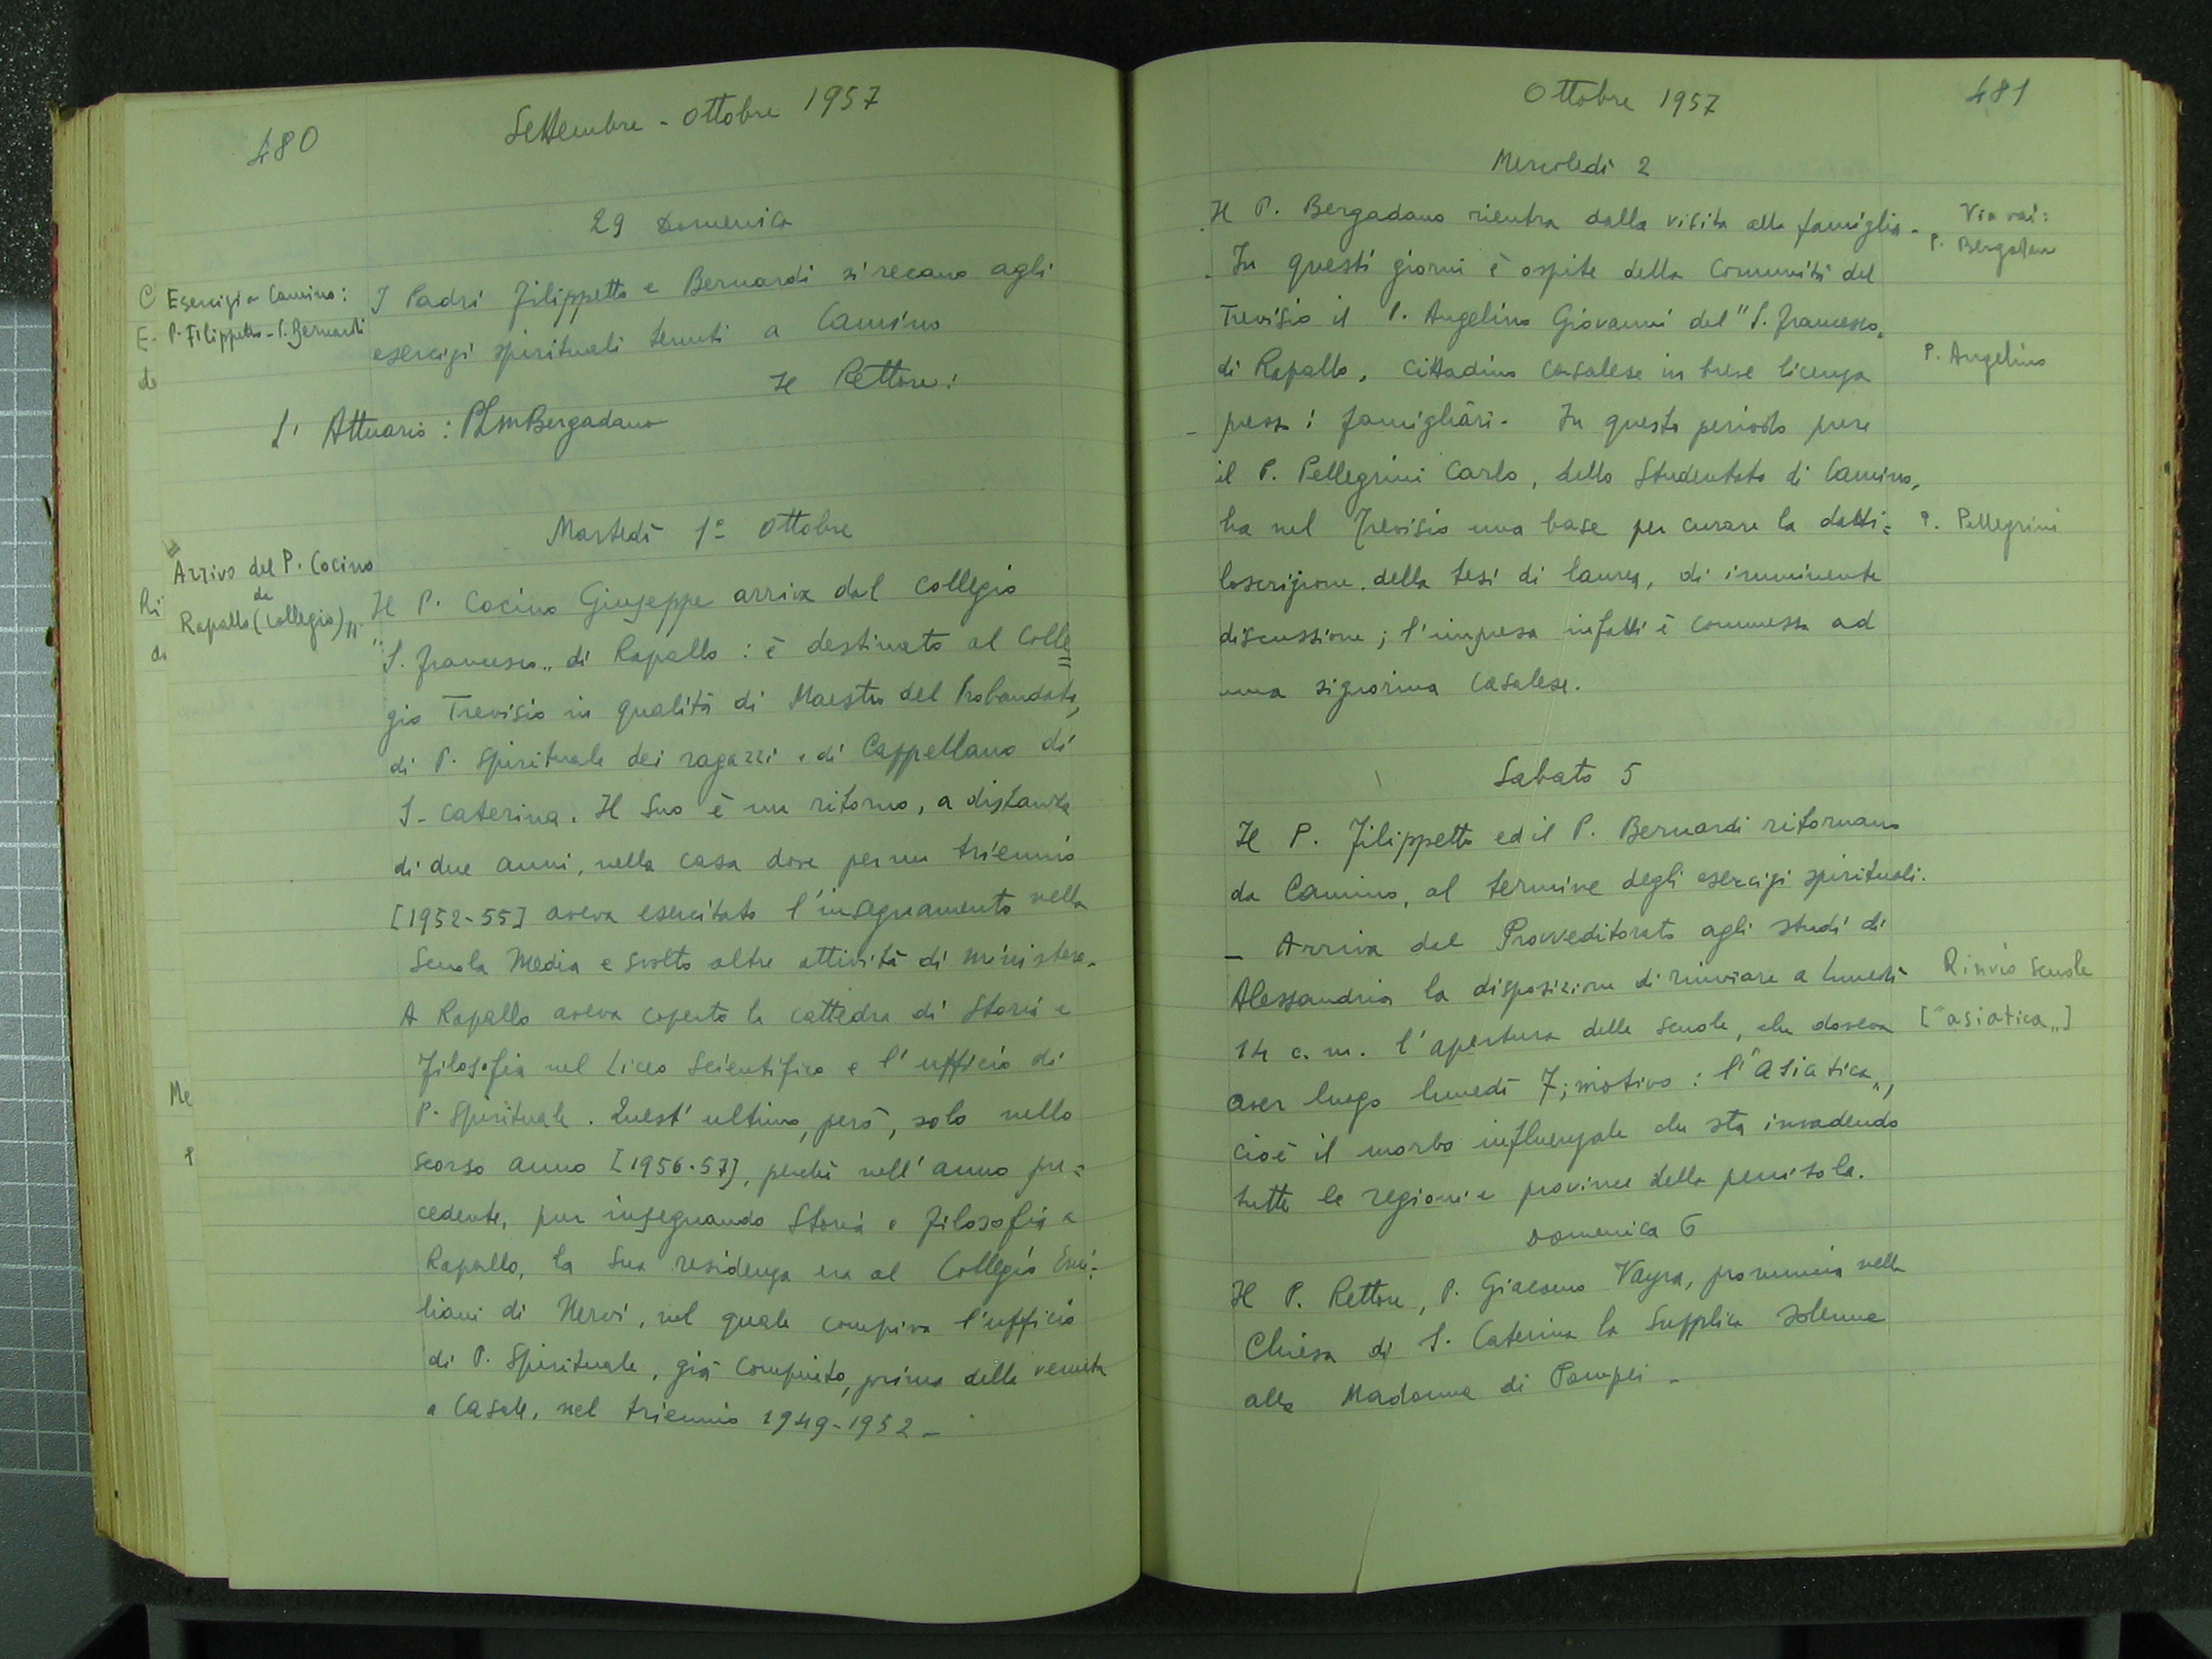 480
Settembre - Ottobre 1957
29 Domenica
Esercizi a Camino:
P. Filippetto - P. Bernardi
I Padri Filippetto e Bernardi si recano agli
esercizi spirituali tenuti a Camino
Il Rettore:
L' Attuario: PLmBergadano
Martedì 1º Ottobre
Arrivo del P. Cocino
da
Rapallo (Collegio)
Il P. Cocino Giuseppe arriva dal Collegio
"S. Francesco" di Rapallo: è destinato al Colle=
gio Trevisio in qualità di Maestro del Probandato,
di P. Spirituale dei ragazzi e di Cappellano di
S. Caterina. Il Suo è un ritorno, a distanza
di due anni, nella casa dove per un triennio
[1952-55] aveva esercitato l'insegnamento nella
Scuola Media e svolto altre attività di ministero.
A Rapallo aveva coperto la cattedra di Storia e
Filosofia nel Liceo Scientifico e l'ufficio di
P. Spirituale. Quest'ultimo, però, solo nello
scorso anno [1956-57], perché nell'anno pre=
cedente, pur insegnando Storia e Filosofia a
Rapallo, la Sua residenza era al Collegio Emi=
liani di Nervi, nel quale compiva l'ufficio
di P. Spirituale, già compiuto, prima della venuta
a Casale, nel triennio 1949-1952 -
C
E.
de
Ri
di
Me
P
Ottobre 1957
481
Mercoledì 2
Il P. Bergadano rientra dalla visita alla famiglia.
Via vai:
P. Bergadano
- In questi giorni è ospite della Comunità del
Trevisio il P. Angelino Giovanni del "S. Francesco"
P. Angelino
di Rapallo, cittadino casalese in breve licenza
presso i famigliari. In questo periodo pure
il P. Pellegrini Carlo, dello Studentato di Camino,
ha nel Trevisio una base per curare la datti=
P. Pellegrini
loscrizione della tesi di laurea, di imminente
discussione; l'impresa infatti è commessa ad
una signorina casalese.
Sabato 5
Il P. Filippetto ed il P. Bernardi ritornano
da Camino, al termine degli esercizi spirituali.
- Arriva dal Provveditorato agli studi di
Alessandria la disposizione di rinviare a lunedì
Rinvio scuole
["asiatica"]
14 c. m. l'apertura delle scuole, che doveva
aver luogo lunedì 7; motivo: l'"asiatica",
cioè il morbo influenzale che sta invadendo
tutte le regioni e province della penisola.
Domenica 6
Il P. Rettore, P. Giacomo Vayra, pronuncia nella
Chiesa di S. Caterina la Supplica solenne
alla Madonna di Pompei -